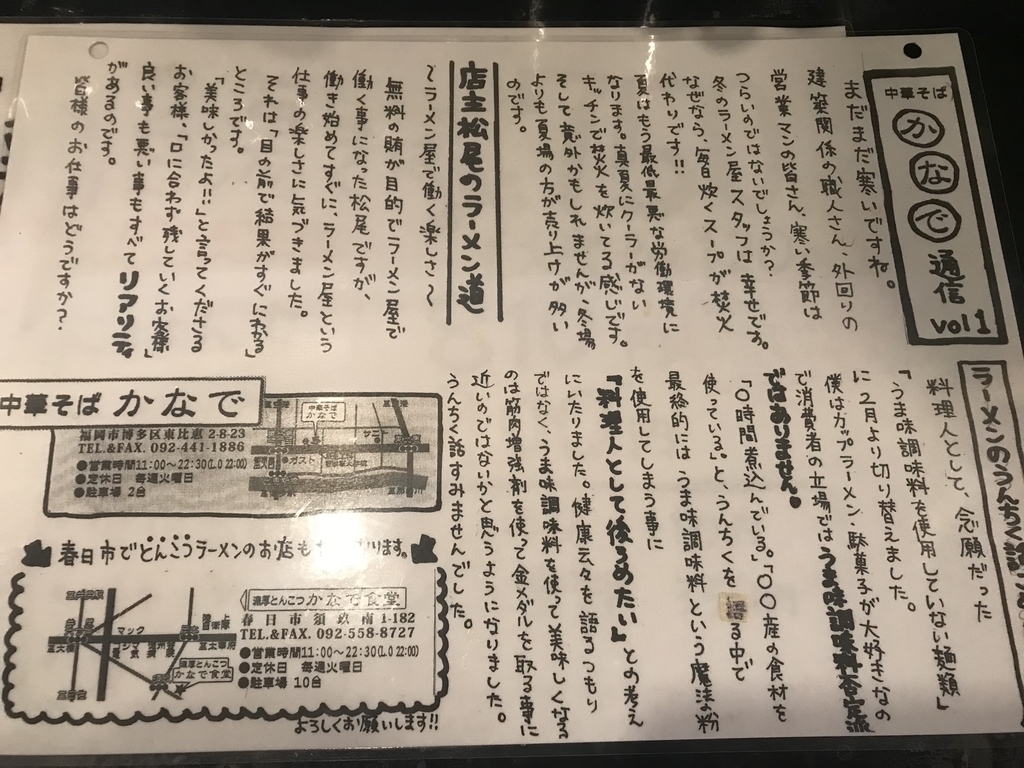 中華そば
かなで
通信
vol1
まだまだ寒いですね。
建築関係の職人さん、外回りの
営業マンの皆さん、寒い季節は
つらいのではないでしょうか?
冬のラーメン屋スタッフは幸せです。
なぜなら、毎日炊くスープが焚火
代わりです!!
夏はもう最低最悪な労働環境に
なります。真夏にクーラーがない
キッチンで焚火を炊いてる感じです。
そして意外かもしれませんが、冬場
よりも夏場の方が売り上げが多い
のです。
店主松尾のラーメン道
〜ラーメン屋で働く楽しさ〜
無料の賄が目的でラーメン屋で
働く事になった松尾ですが、
働き始めてすぐに、ラーメン屋という
仕事の楽しさに気づきました。
それは「目の前で結果がすぐにわかる」
ところです。
「美味しかったよ!!」と言ってくださる
お客様、「口に合わず残していくお客様」
良い事も悪い事もすべてリアリティ
があるのです。
皆様のお仕事はどうですか?
ラーメンのうんちく話
料理人として、念願だった
「うま味調味料を使用していない麺類」
に2月より切り替えました。
僕はカップラーメン、駄菓子が大好きなの
で消費者の立場ではうま味調味料否定派
ではありません。
「〇時間煮込んでいる。」「〇〇産の食材を
使っている。」と、うんちくを語る中で
最終的にはうま味調味料という魔法の粉
を使用してしまう事に
「料理人として後ろめたい」との考え
にいたりました。健康云々を語るつもり
ではなく、うま味調味料を使って美味しくなる
のは筋肉増強剤を使って金メダルを取る事に
近いのではないかと思うようになりました。
うんちく話すみませんでした。
中華そば かなで
福岡市博多区東比恵 2-8-23
TEL.&FAX. 092-441-1886
●営業時間11:00〜22:30(L.O 22:00)
●定休日 毎週火曜日
●駐車場 2台
中華そば
かなで
ガスト
春日市でとんこつラーメンのお店も
ります。
濃厚とんこつ かなで食堂
春日市須玖南1-182
TEL.&FAX. 092-558-8727
●営業時間11:00〜22:30(L.O 22:00)
●定休日 毎週火曜日
●駐車場 10台
マック
濃厚とんこつ
かなで食堂
よろしくお願いします!!